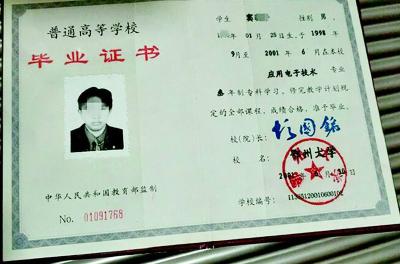 普通高等学校
毕业证书
中华人民共和国教育部监制
No. 01091768
学生 性别 男，
年01月25日生，于1998
年9月至2001年6月在本校
应用电子技术 专业
叁年制专科学习，修完教学计划规
定的全部课程，成绩合格，准予毕业。
校(院)长：
校(院)：州大学
学校编号：